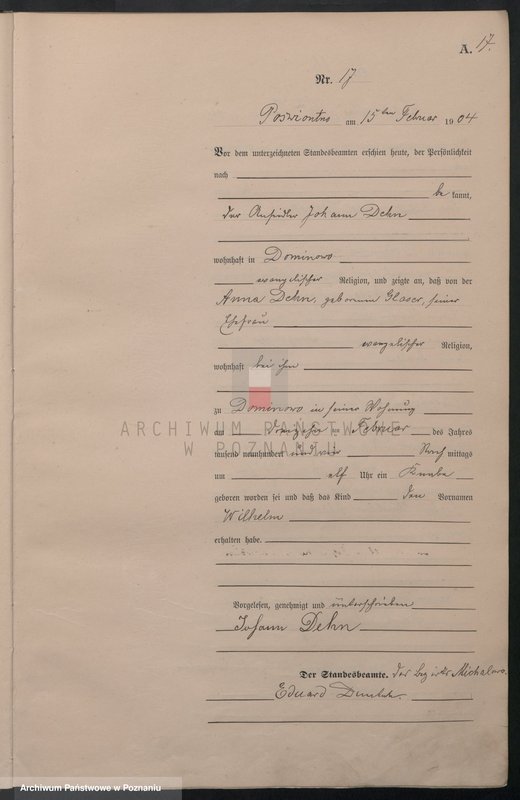 A. 17.
Nr. 17
am 15ten Februar 1904
Vor dem unterzeichneten Standesbeamten erschien heute, der Persönlichkeit
nach
be kannt,
der Ansiedler Johann Dehn
wohnhaft in Dominowo
evangelischer Religion, und zeigte an, daß von der
Anna Dehn, geborenen Glaser, seiner
Ehefrau
evangelischer Religion,
wohnhaft bei ihm
zu Dominowo in seiner Wohnung
am dreizehn ten Februar des Jahres
tausend neunhundert und vier Nach mittags
um elf Uhr ein Knabe
geboren worden sei und daß das Kind den Vornamen
Wilhelm
erhalten habe.
Vorgelesen, genehmigt und unterschrieben
Johann Dehn
Der Standesbeamte. der Bezirks Michalowo.
Eduard
ARCHIWUM PAŃSTWOWE
W POZNANIU
Archiwum Państwowe w Poznaniu